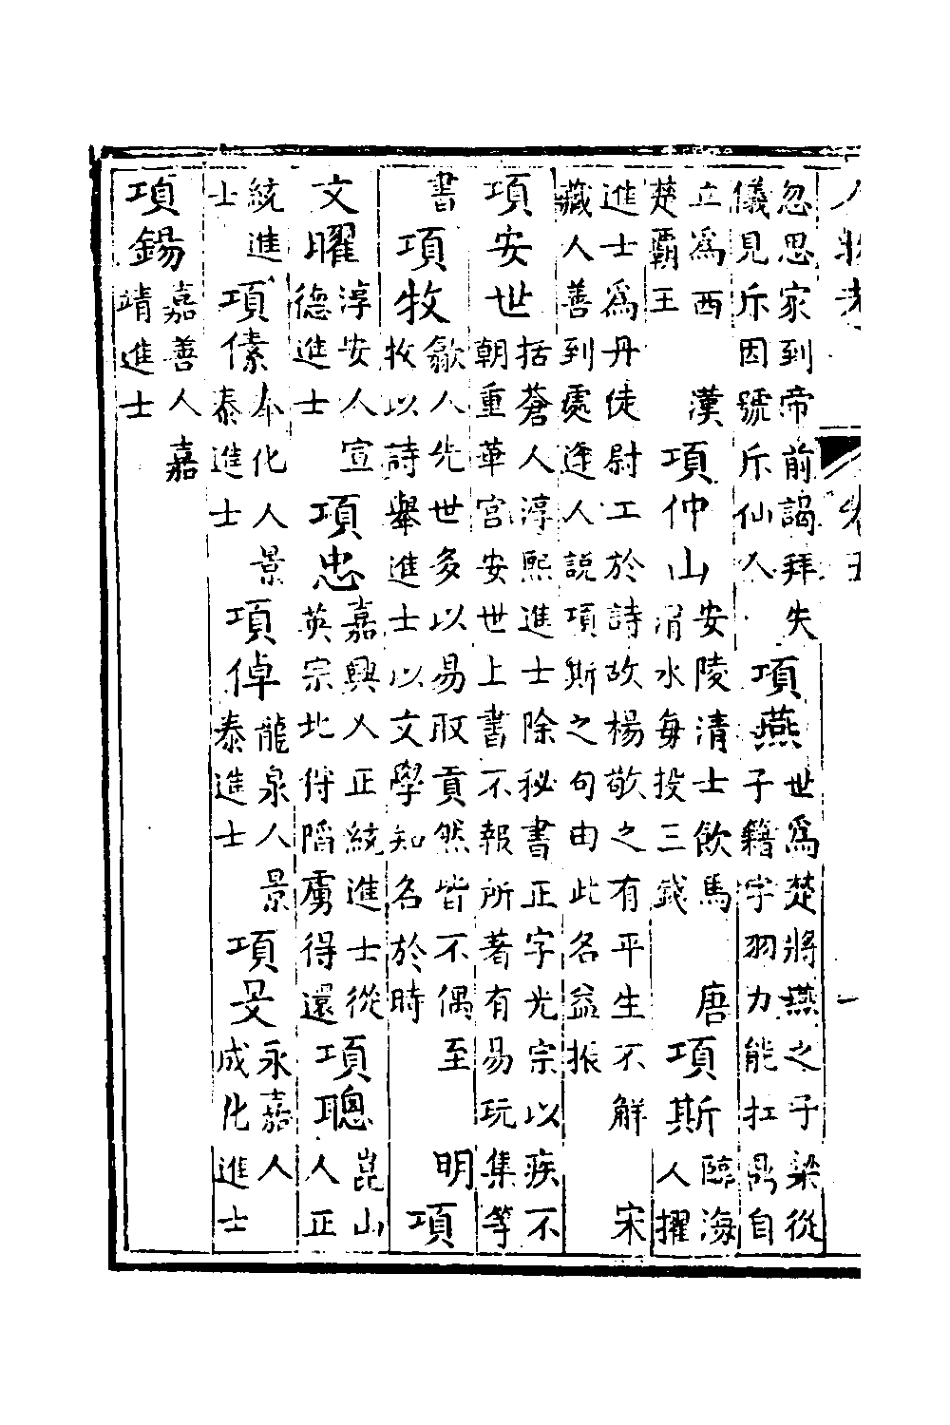 忽思家到帝前謁拜失
儀見斥因號斥仙人
項燕
世爲楚將燕之子梁從
子籍字羽力能扛鼎自
立爲西
楚霸王
漢
項仲山
安陵清士飲馬
渭水每投三錢
唐
項斯
臨海
人擢
進士爲丹徒尉工於詩故楊敬之有平生不解
藏人善到處逢人説項斯之句由此名益振
宋
項安世
括蒼人淳熙進士除秘書正字光宗以疾不
朝重華宮安世上書不報所著有易玩集等
書
項牧
歙人先世多以易取貢然皆不偶至
牧以詩舉進士以文學知名於時
明
項
文曜
淳安人宣
德進士
項忠
嘉興人正統進士從
英宗北狩陷虜得還
項聰
崑山
人正
統進
士
項傃
奉化人景
泰進士
項倬
龍泉人景
泰進士
項旻
永嘉人
成化進士
項錫
嘉善人嘉
靖進士